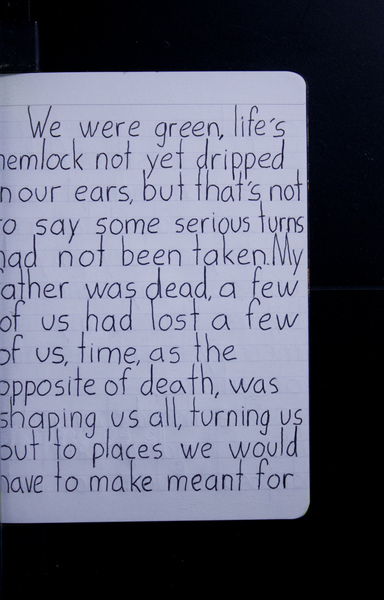 We were green, life's
hemlock not yet dripped
in our ears, but that's not
to say some serious turns
had not been taken. My
father was dead, a few
of us had lost a few
of us, time, as the
opposite of death, was
shaping us all, turning us
out to places we would
have to make meant for